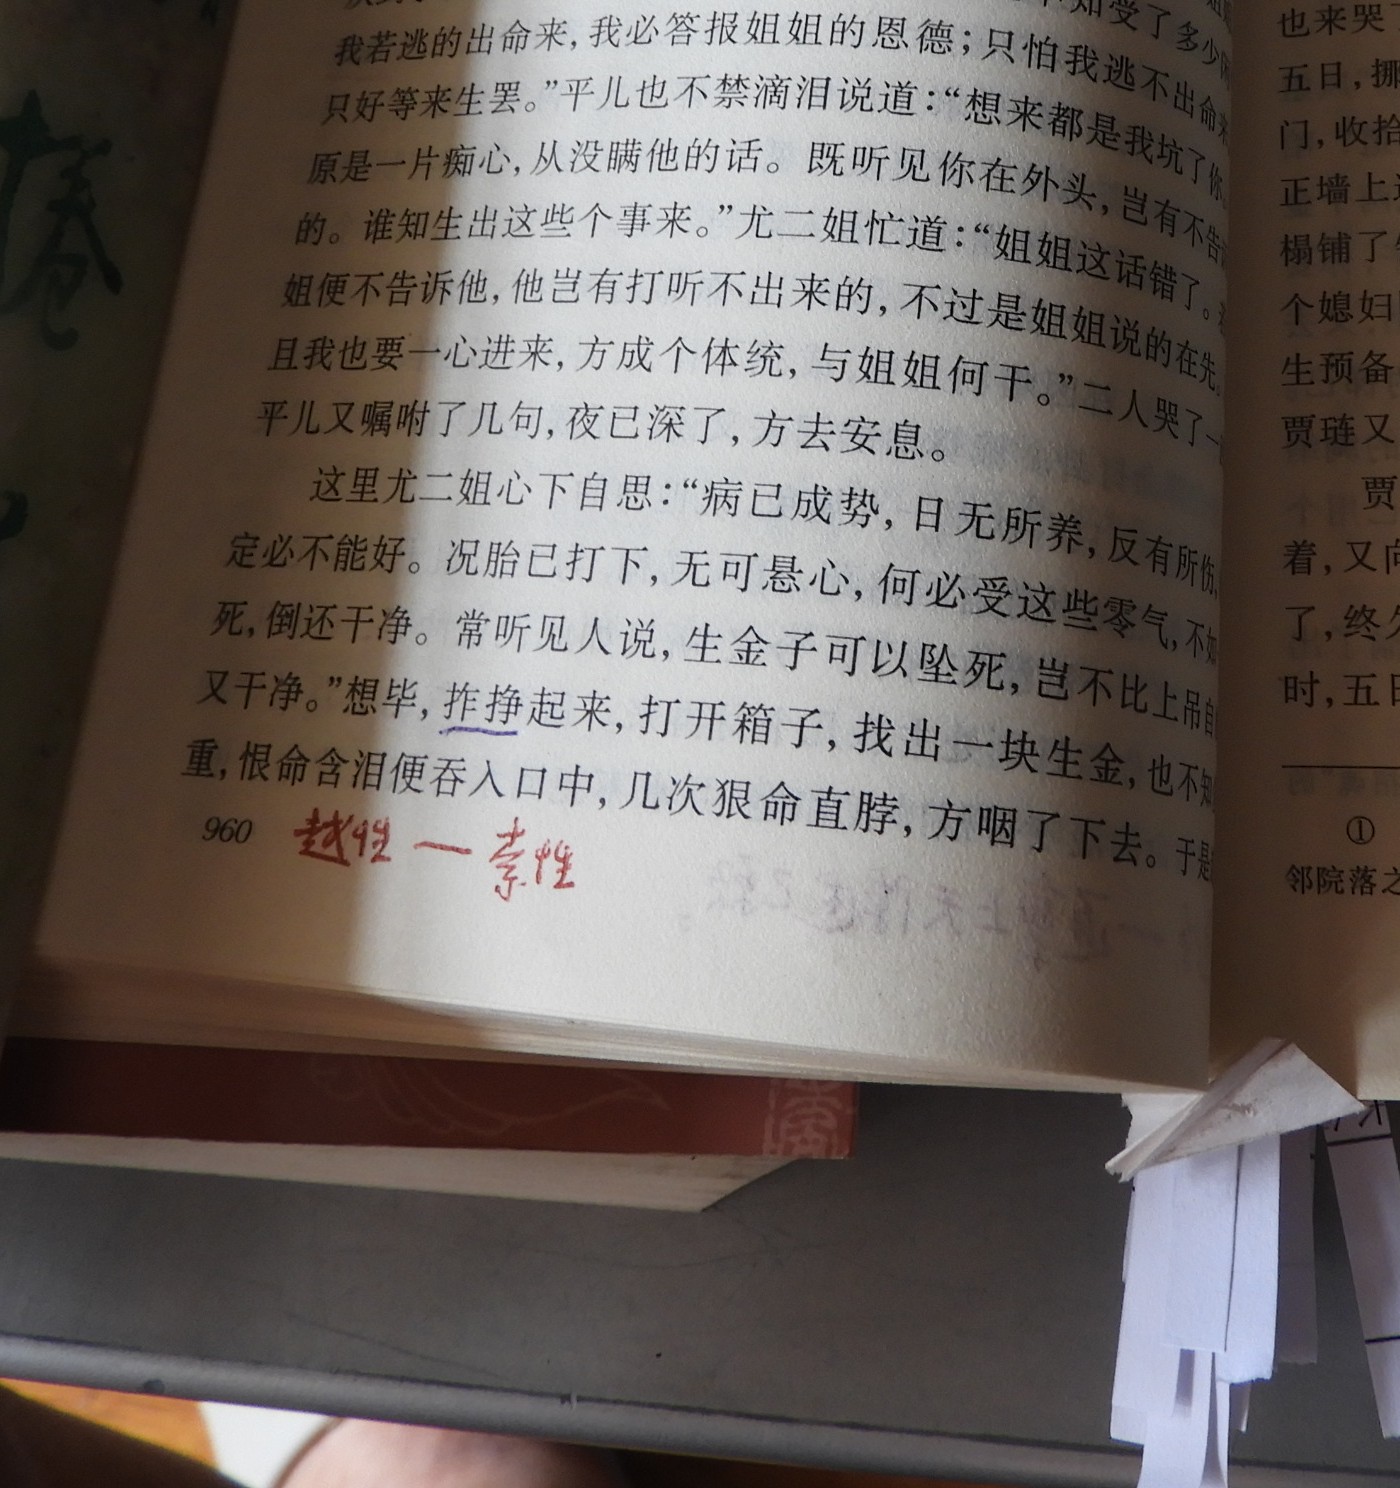 知受了多少
我若逃的出命来，我必答报姐姐的恩德；只怕我逃不出命来
只好等来生罢。”平儿也不禁滴泪说道：“想来都是我坑了你。
原是一片痴心，从没瞒他的话。既听见你在外头，岂有不告
的。谁知生出这些个事来。”尤二姐忙道：“姐姐这话错了。
姐便不告诉他，他岂有打听不出来的，不过是姐姐说的在先。
且我也要一心进来，方成个体统，与姐姐何干。”二人哭了一
平儿又嘱咐了几句，夜已深了，方去安息。
这里尤二姐心下自思：“病已成势，日无所养，反有所伤，
定必不能好。况胎已打下，无可悬心，何必受这些零气，不如
死，倒还干净。常听见人说，生金子可以坠死，岂不比上吊自
又干净。”想毕，拃挣起来，打开箱子，找出一块生金，也不知
重，恨命含泪便吞入口中，几次狠命直脖，方咽了下去。于是
960 越性 — 索性
也来哭
五日，挪
门，收拾
正墙上
榻铺了
个媳妇
生预备
贾琏又
贾
着，又向
了，终久
时，五日
①
邻院落之